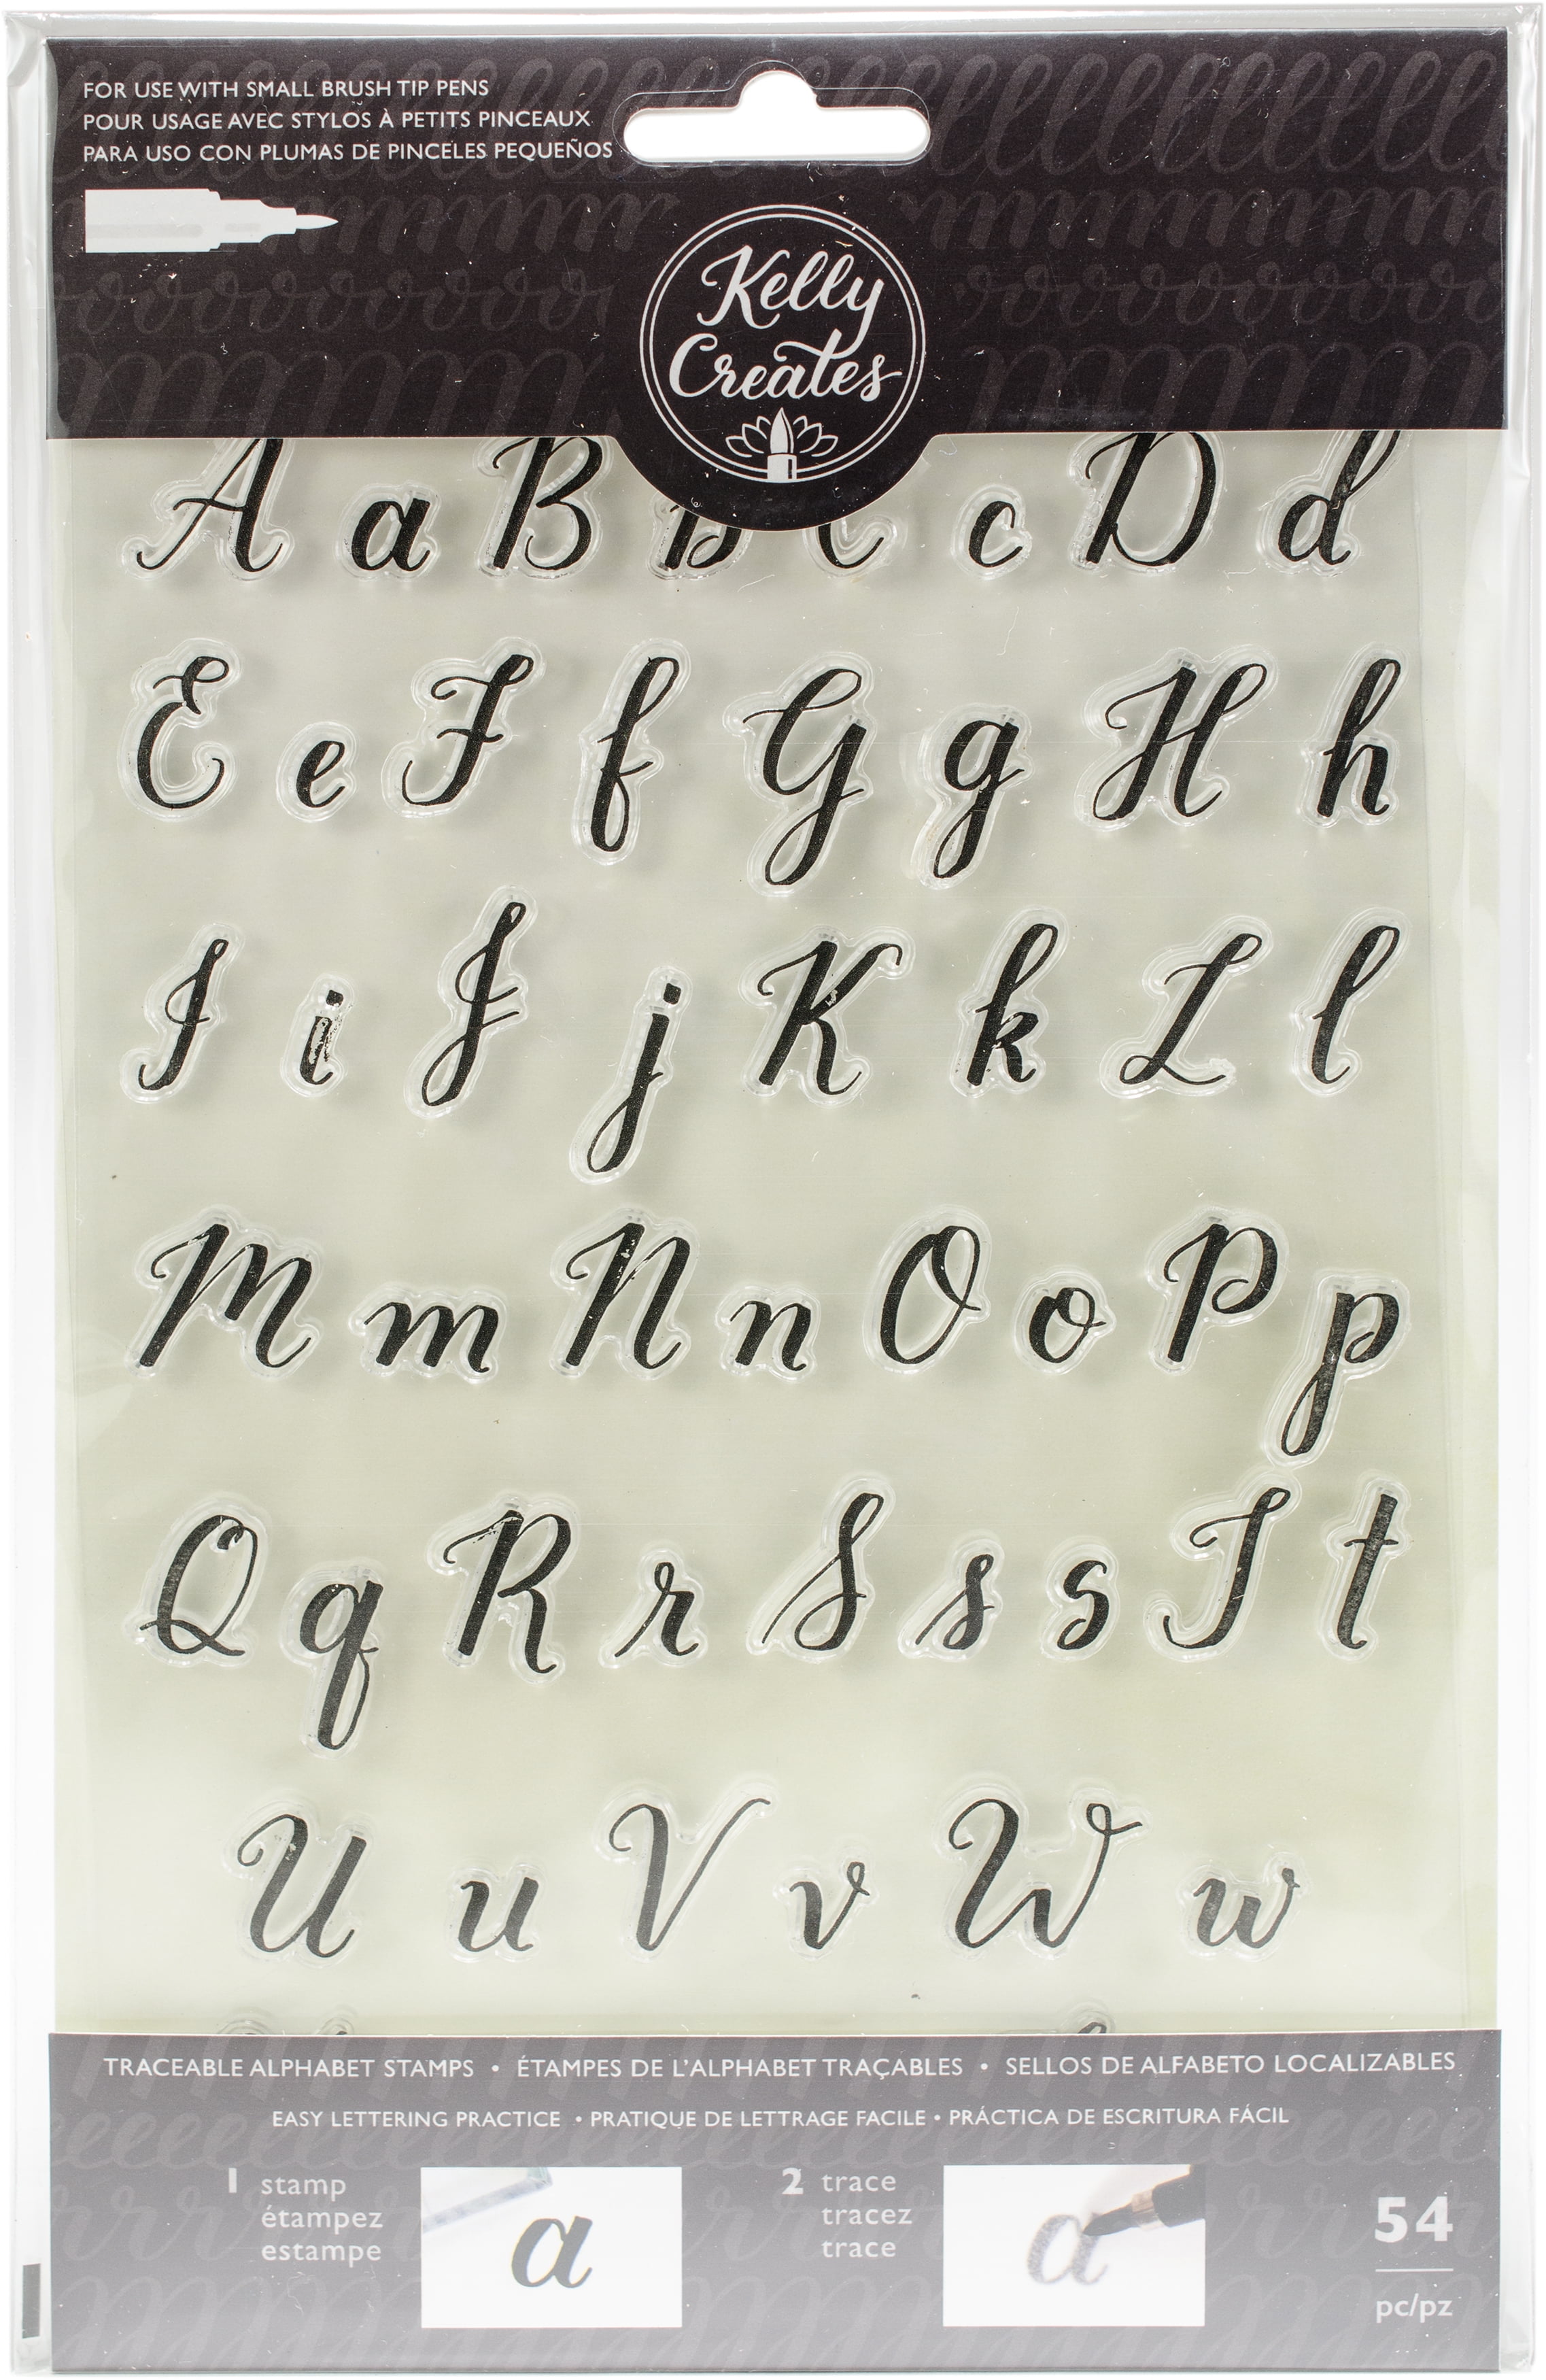 FOR USE WITH SMALL BRUSH TIP PENS
POUR USAGE AVEC STYLOS À PETITS PINCEAUX
PARA USO CON PLUMAS DE PINCELES PEQUEÑOS
Kelly
Creates
A a B b C c D d
E e F f G g H h
I i J j K k L l
M m N n O o P p
Q q R r S s s T t
U u V v W w
TRACEABLE ALPHABET STAMPS • ÉTAMPES DE L'ALPHABET TRAÇABLES • SELLOS DE ALFABETO LOCALIZABLES
EASY LETTERING PRACTICE • PRATIQUE DE LETTRAGE FACILE • PRÁCTICA DE ESCRITURA FÁCIL
1 stamp
étampez
estampe
a
2 trace
tracez
trace
a
54
pc/pz